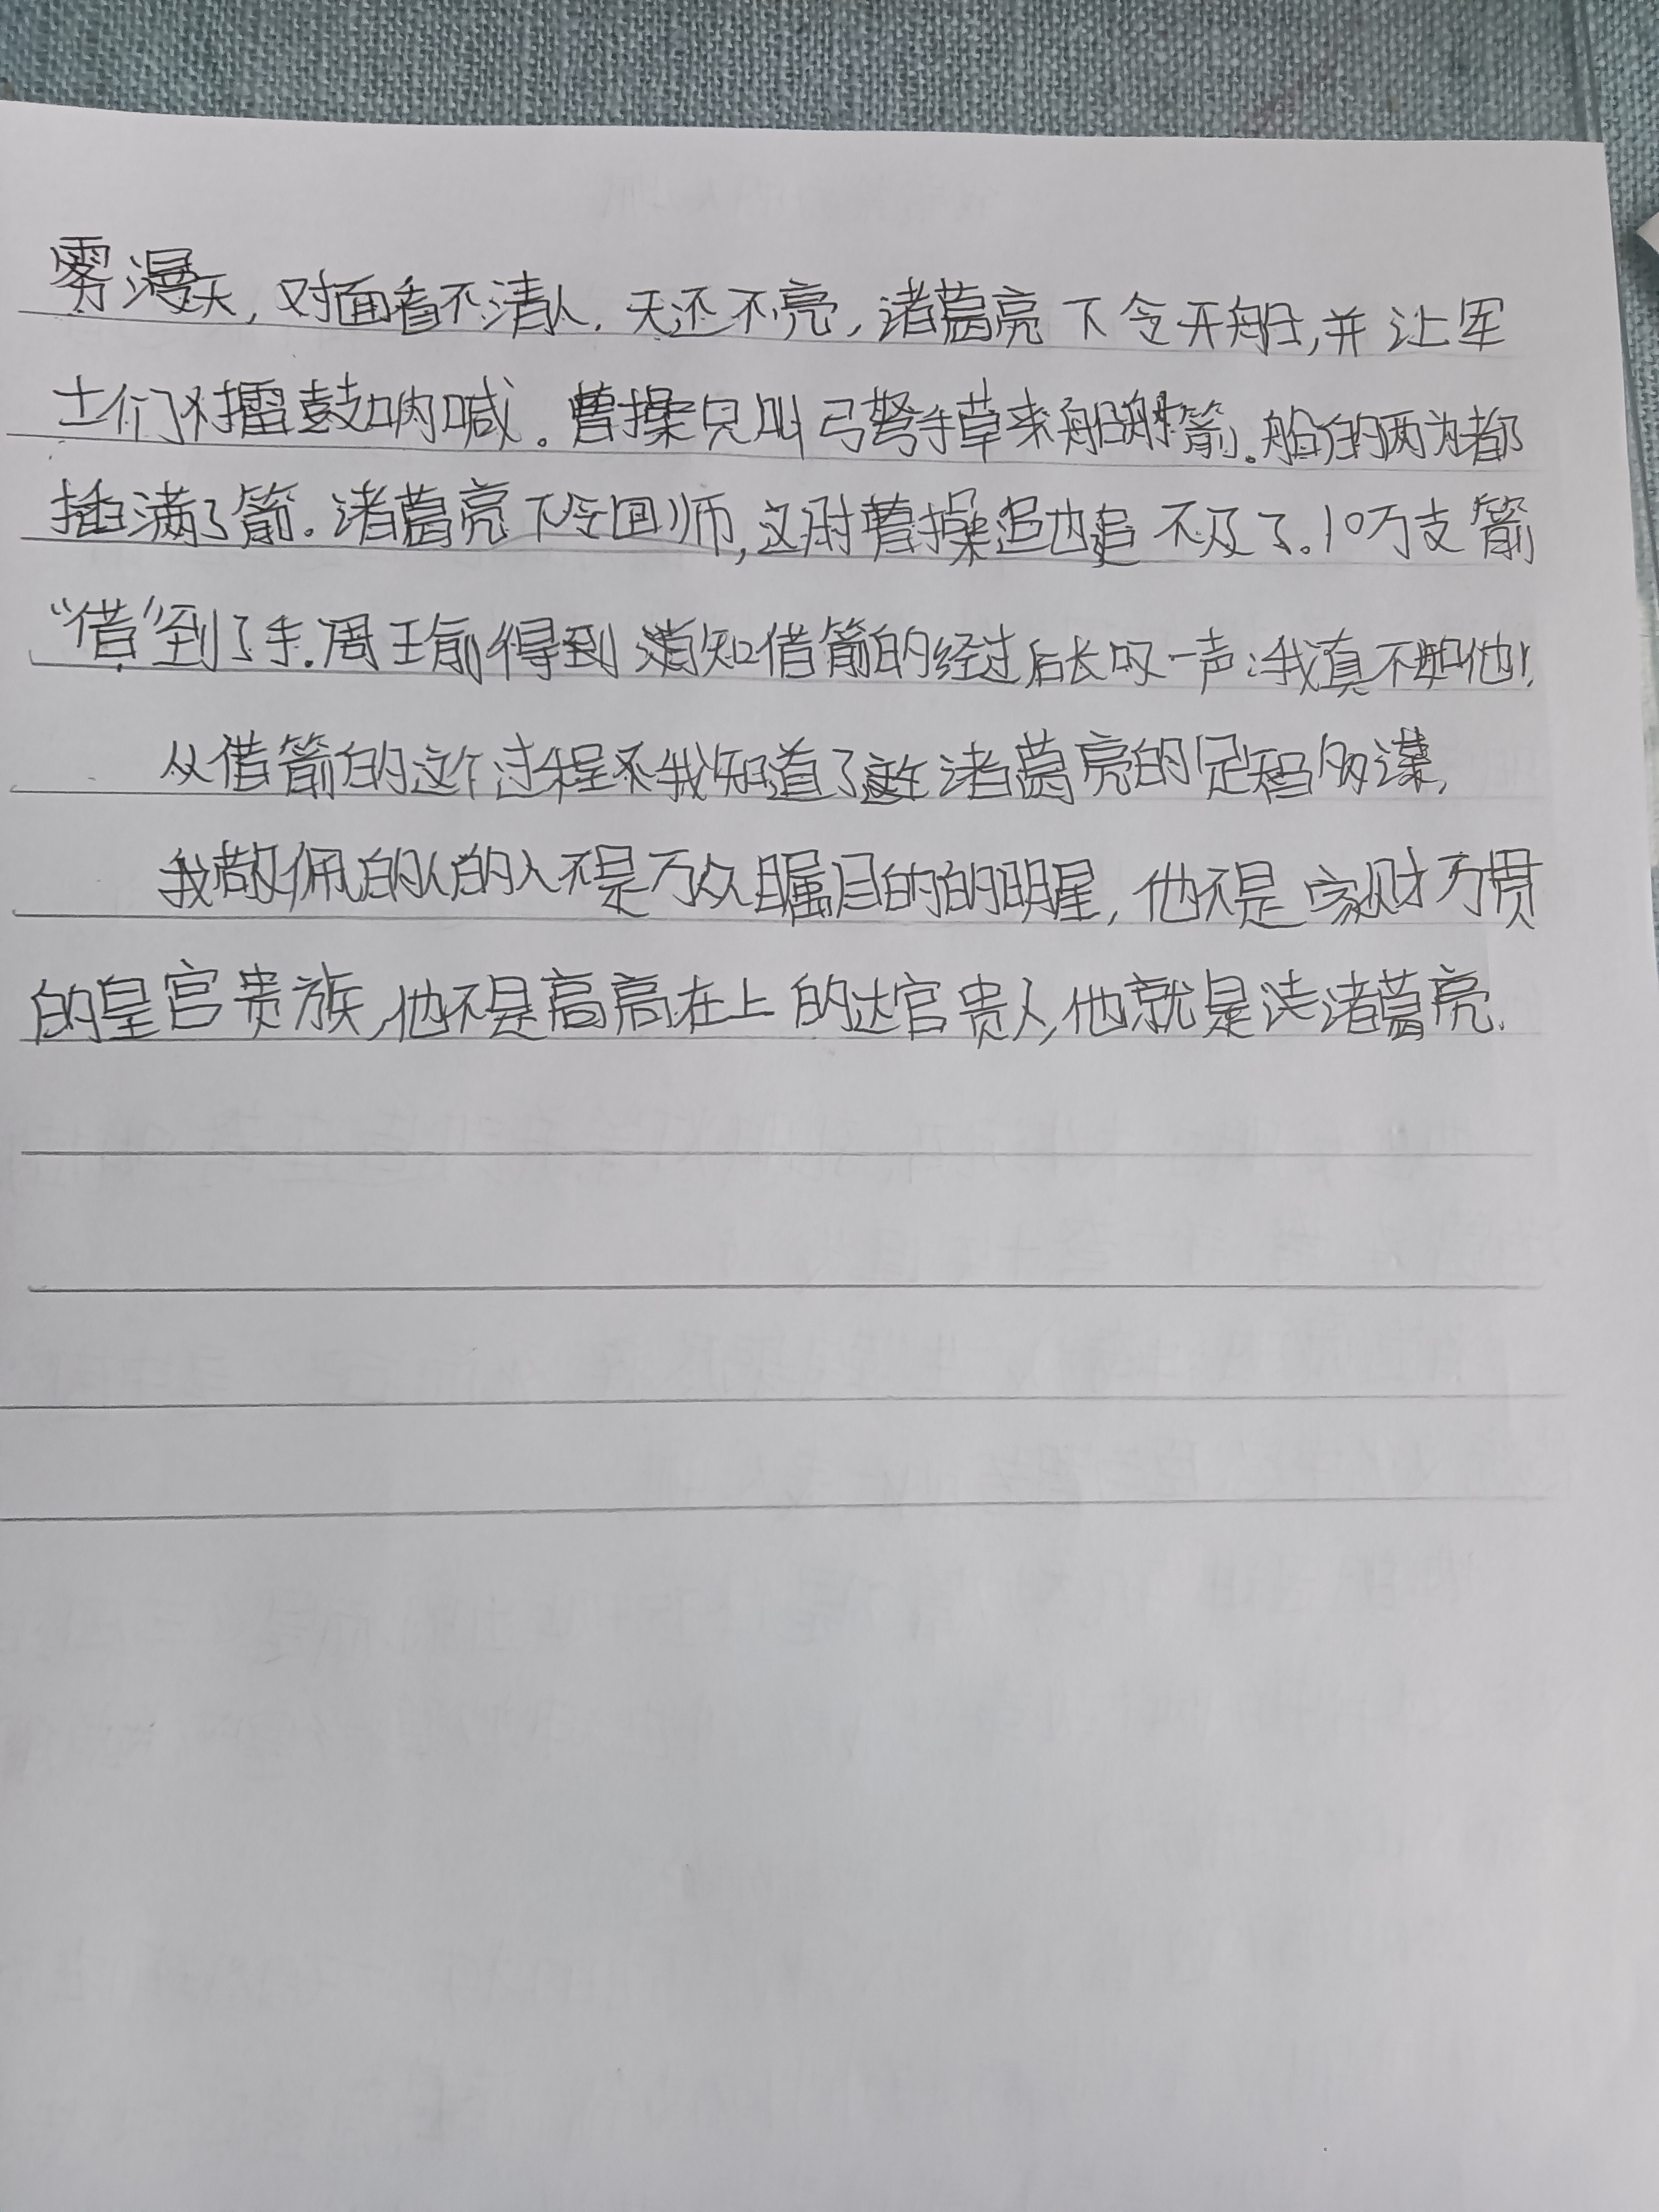 雾漫天，对面看不清人.天还不亮，诸葛亮下令开船，并让军
士们擂鼓呐喊。曹操只叫弓弩手草来船射箭。船的两为都
插满了箭。诸葛亮下令回师，这时曹操追也追不及了。10万支箭
“借”到了手.周瑜得到消知借箭的经过后长叹一声：我真不如他！
从借箭的这个过程我知道了诸葛亮的足智多谋，
我敬佩的人的人不是万众瞩目的的明星，他不是家财万贯
的皇官贵族，他不是高高在上的达官贵人，他就是诸葛亮.